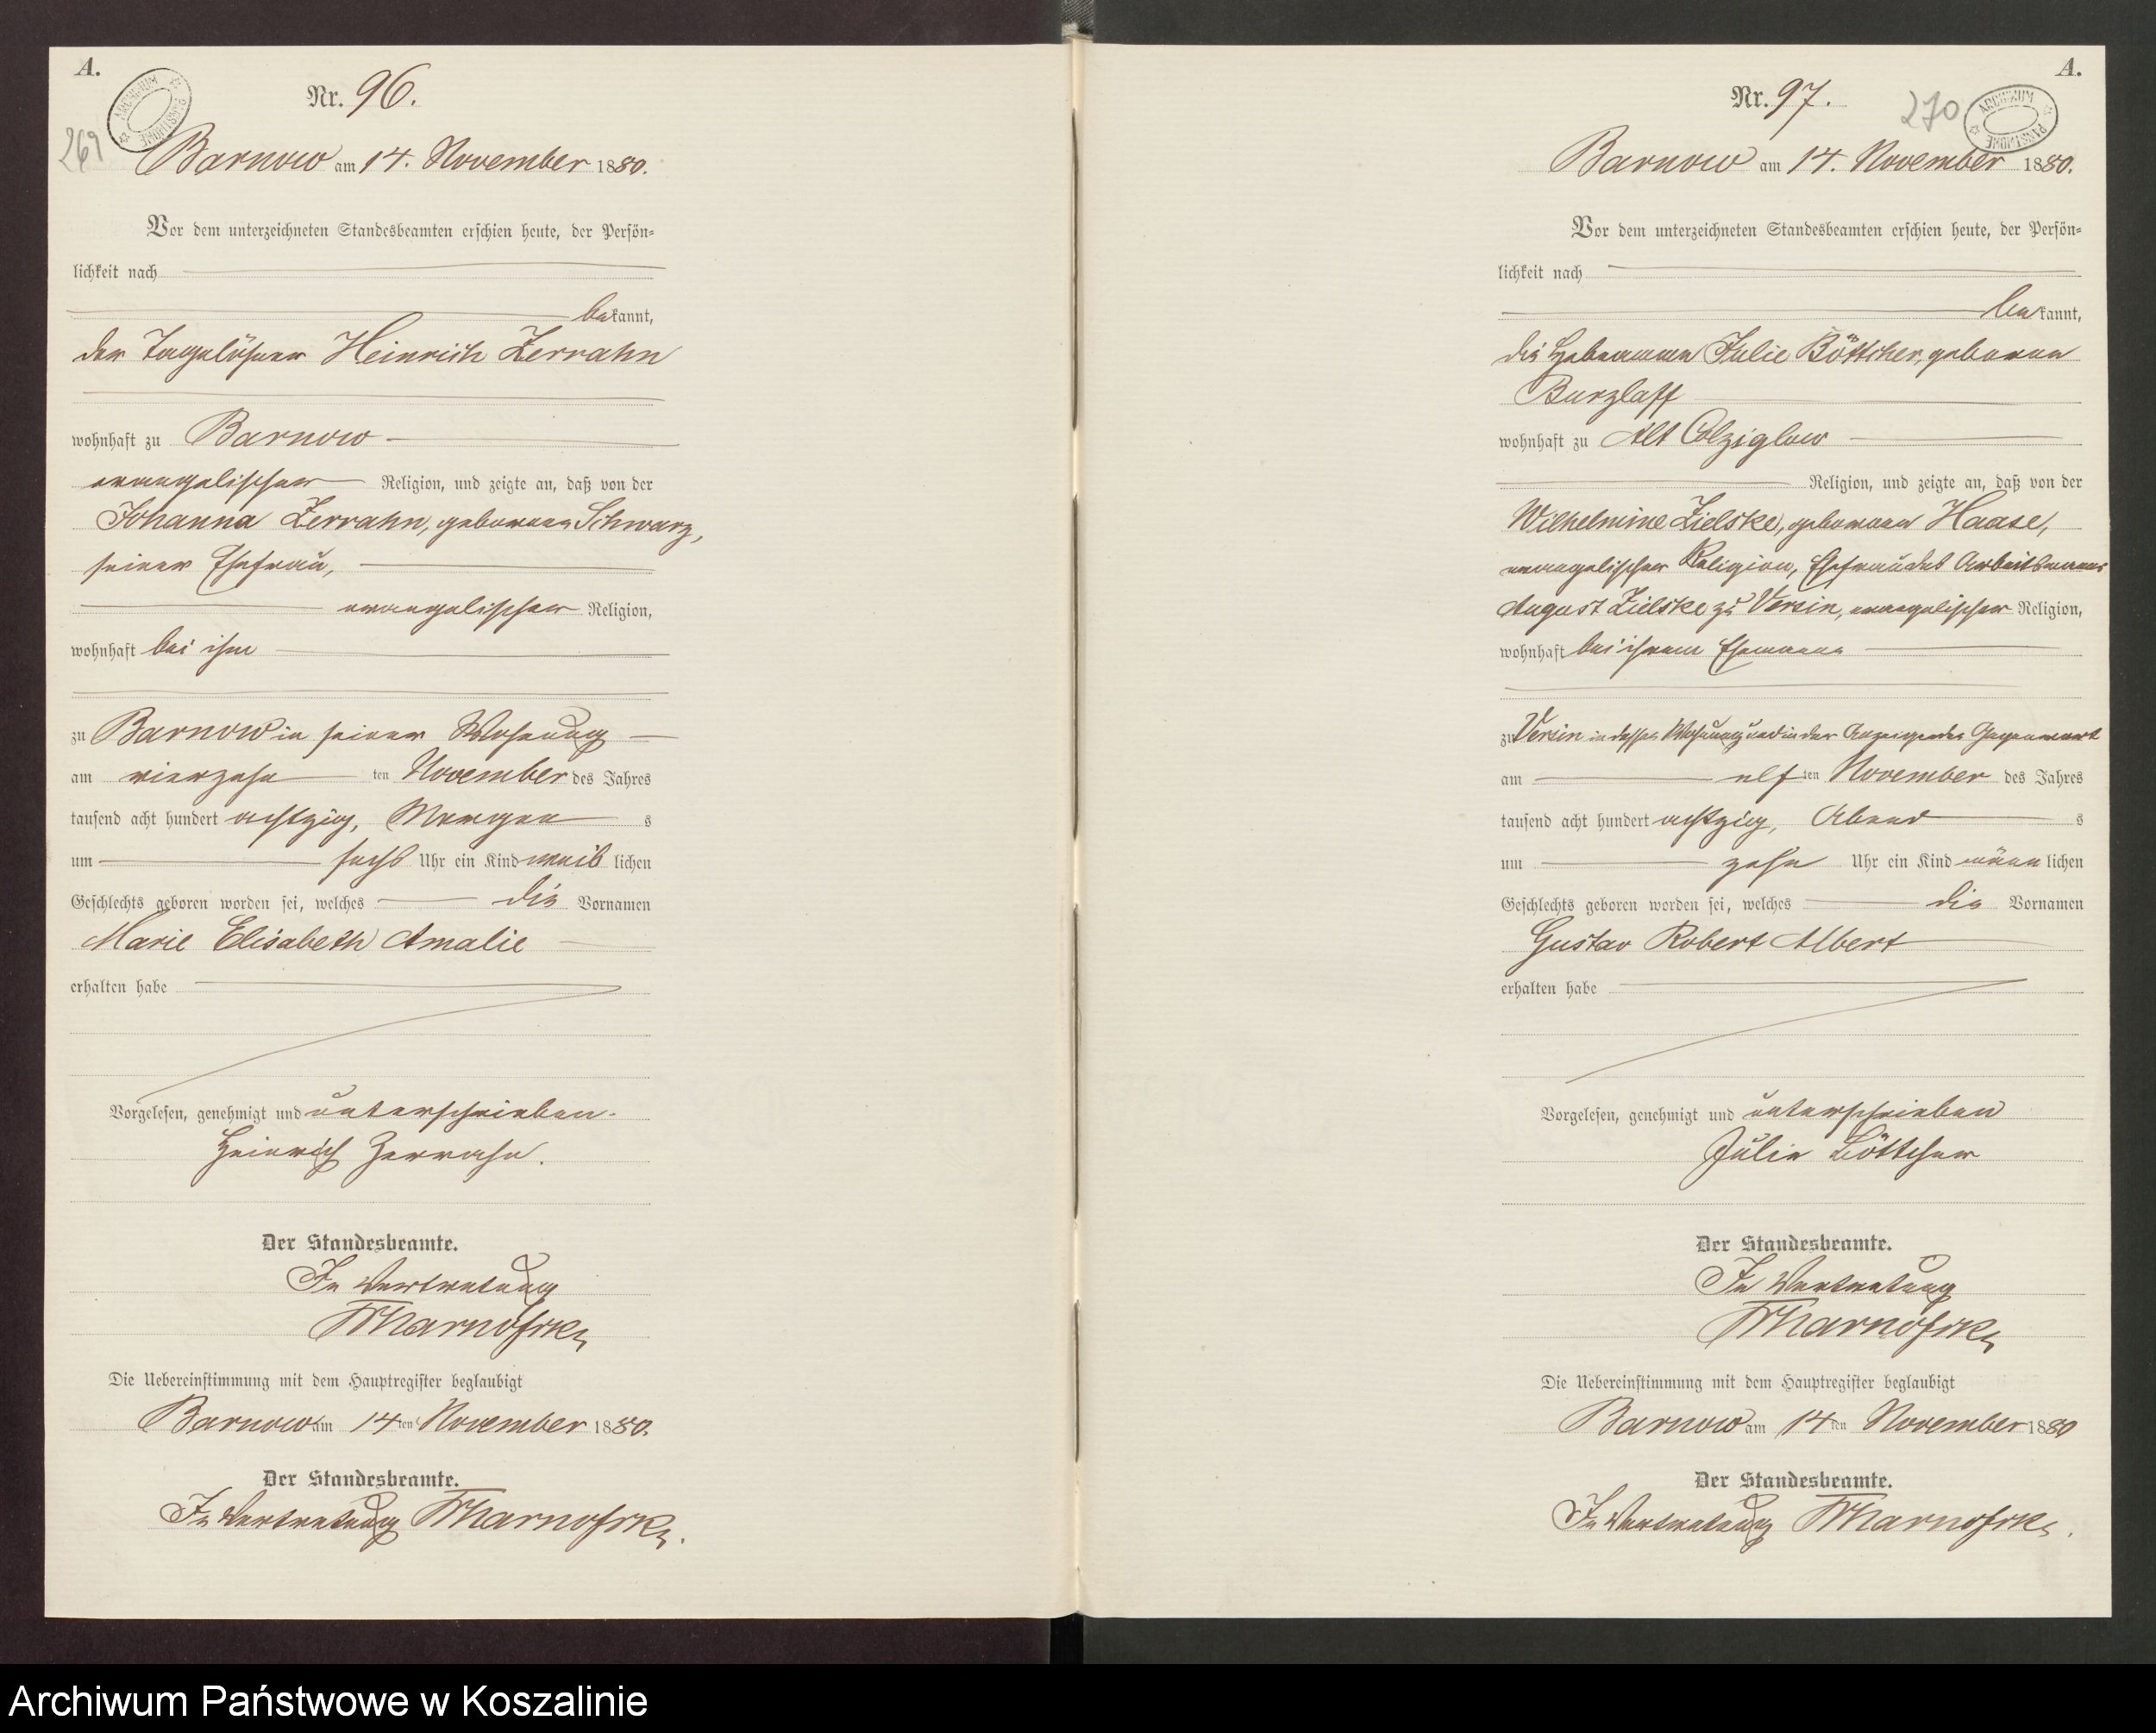 A.
ARCHIWUM PAŃSTWOWE
269
Nr. 96.
Barnow am 14. November 1880.
Vor dem unterzeichneten Standesbeamten erschien heute, der Persön=
lichkeit nach
bekannt,
der Tagelöhner Heinrich Zerrahn
wohnhaft zu Barnow
evangelischer Religion, und zeigte an, daß von der
Johanna Zerrahn, geborenen Schwarz,
seiner Ehefrau,
evangelischer Religion,
wohnhaft bei ihm
zu Barnow in seiner Wohnung
am vierzehn ten November des Jahres
tausend acht hundert achtzig, Morgen s
um sechs Uhr ein Kind weib lichen
Geschlechts geboren worden sei, welches die Vornamen
Marie Elisabeth Amalie
erhalten habe
Vorgelesen, genehmigt und unterschrieben.
Heinrich Zerrahn.
Der Standesbeamte.
In Vertretung
Die Uebereinstimmung mit dem Hauptregister beglaubigt
Barnow am 14 ten November 1880.
Der Standesbeamte.
In Vertretung
A.
ARCHIWUM PAŃSTWOWE
270
Nr. 97.
Barnow am 14. November 1880.
Vor dem unterzeichneten Standesbeamten erschien heute, der Persön=
lichkeit nach
bekannt,
die Hebamme Julie Böttcher, geborene
Burzlaff
wohnhaft zu Alt Colziglow
Religion, und zeigte an, daß von der
Wilhelmine Zielske, geborenen Haase,
evangelischer Religion, Ehefrau des Arbeitsmanns
August Zielske zu Versin, evangelischer Religion,
wohnhaft bei ihrem Ehemann
zu Versin in dessen Wohnung und in der Anzeigenden Gegenwart
am elf ten November des Jahres
tausend acht hundert achtzig, Abend s
um zehn Uhr ein Kind männ lichen
Geschlechts geboren worden sei, welches die Vornamen
Gustav Robert Albert
erhalten habe
Vorgelesen, genehmigt und unterschrieben
Julie Böttcher
Der Standesbeamte.
In Vertretung
Die Uebereinstimmung mit dem Hauptregister beglaubigt
Barnow am 14 ten November 1880
Der Standesbeamte.
In Vertretung
Archiwum Państwowe w Koszalinie